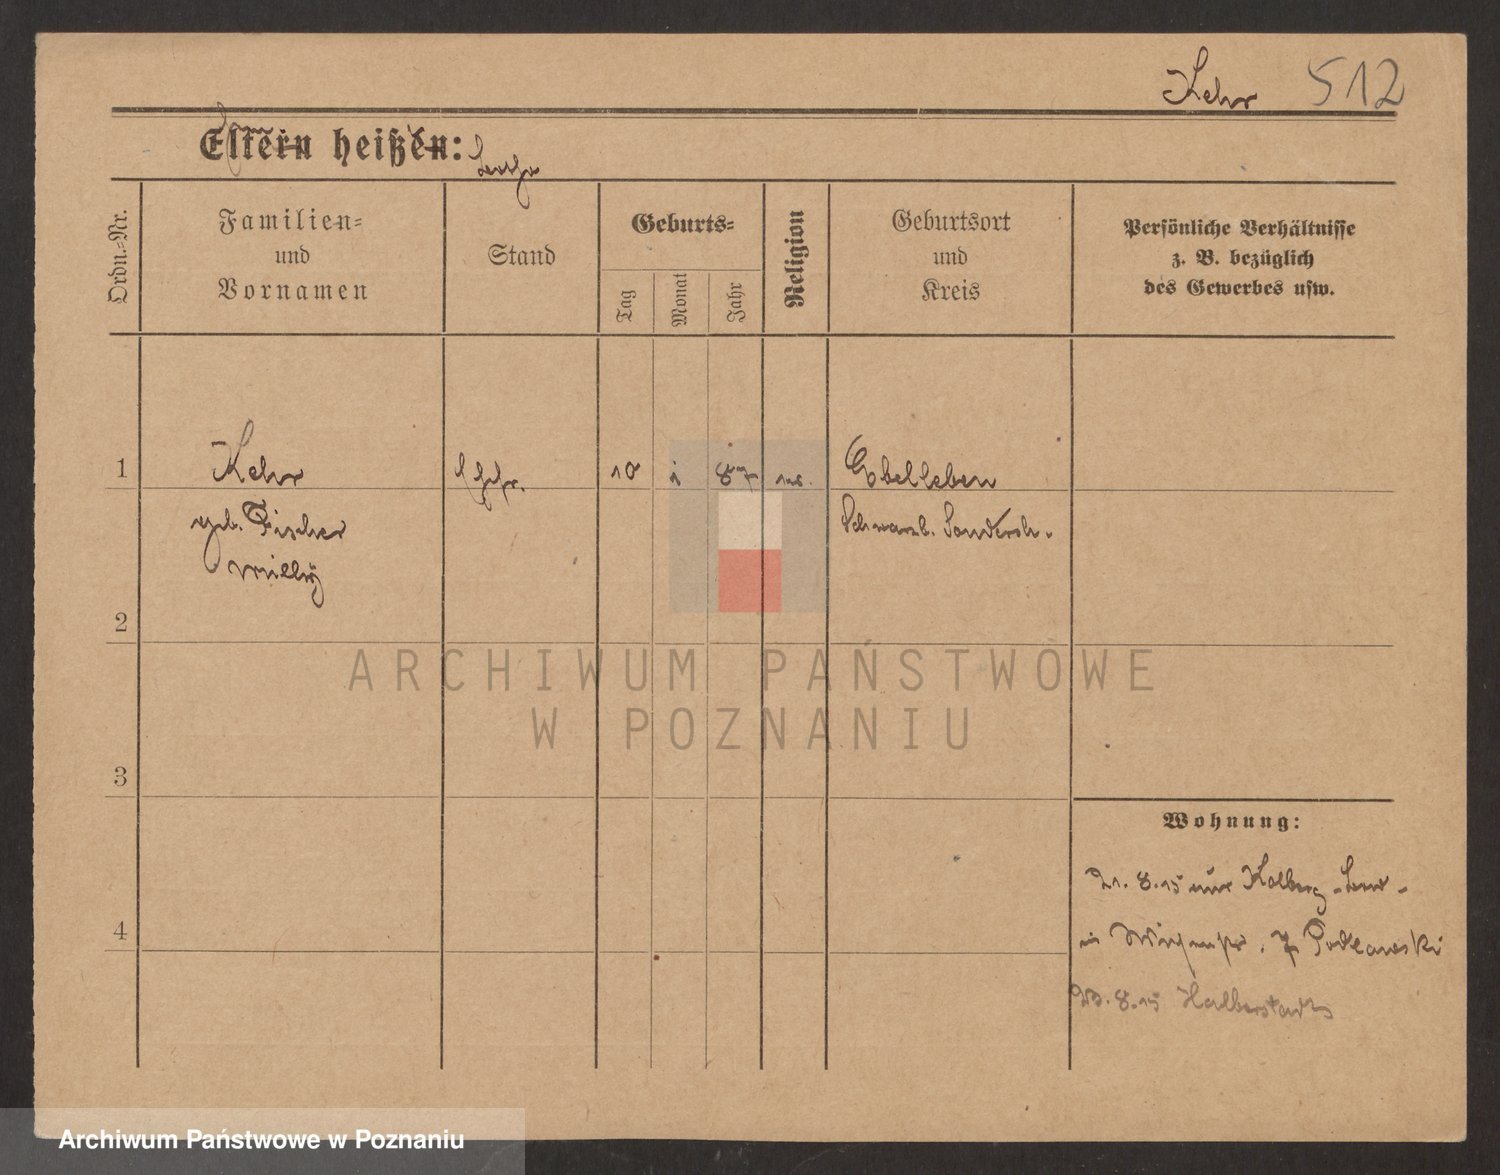 Kehr 512
Eltern heißen:
Ordn.-Nr.
Familien-
und
Vornamen
Stand
Geburts-
Tag
Monat
Jahr
Religion
Geburtsort
und
Kreis
Persönliche Verhältnisse
z. B. bezüglich
des Gewerbes usw.
1
Kehr
10 1 87
Ebelleben
geb. Fischer
Schwarzb. Sondersh.
Willy
2
3
4
Wohnung:
21. 8. 15 Kolberg
in 7 Podlawski
23. 8. 15 Halberstadt
ARCHIWUM PAŃSTWOWE
W POZNANIU
Archiwum Państwowe w Poznaniu